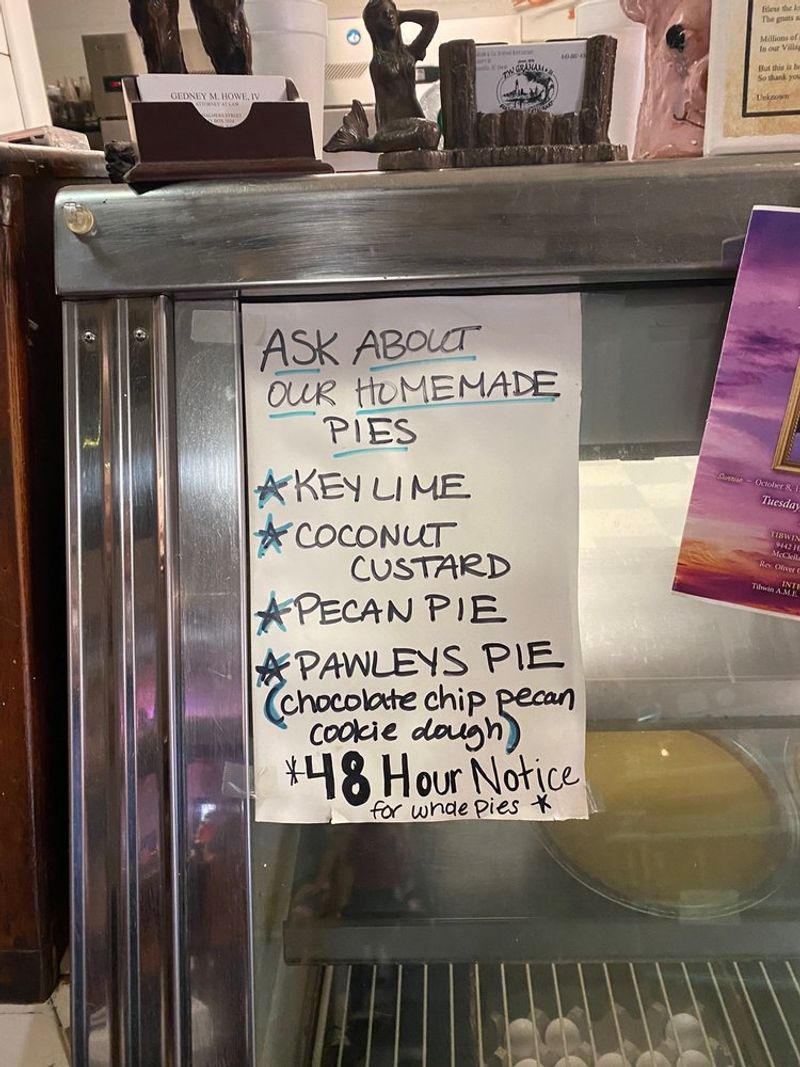 GEDNEY M. HOWE, IV
ATTORNEY AT LAW
Bless the
The gnats a
Millions of
In our Villa
But this is h
So thank you
Unknown
ASK ABOUT
OUR HOMEMADE
PIES
KEY LIME
COCONUT
CUSTARD
PECAN PIE
PAWLEYS PIE
(chocolate chip pecan
cookie dough)
*48 Hour Notice
for whole pies *
Sunrise – October 8, 1
Tuesday
TIBWIN
McClell
Rev. Oliver
INTE
Tibwin A.M.E.